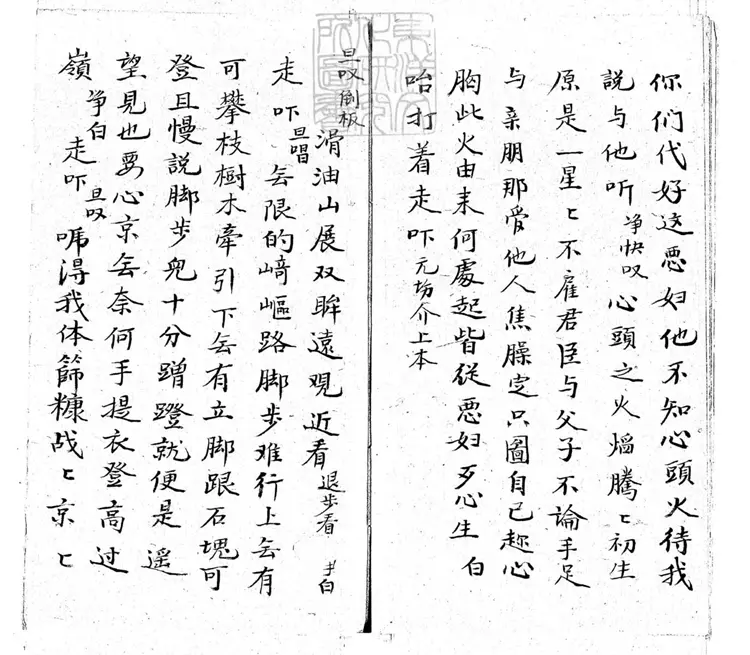 你们代好这恶妇他不知心頭火待我
説与他听 净快叹 心頭之火熖騰〻初生
原是一星〻不雇君臣与父子不論手足
与亲朋那爱他人焦臊定只圖自己趂心
胸此火由来何處起皆従恶妇歹心生 白
咍打着走吓 元场介上本
旦叹倒板 滑油山展双眸遠覌近看 退步看 丰白
走吓 旦唱 无限的﨑嶇路脚步难行上无有
可攀枝樹木牵引下无有立脚跟石塊可
登且慢説脚步兜十分蹭蹬就便是遥
望見也要心京无奈何手提衣登高过
嶺 净白 走吓 旦叹 唬淂我体篩糠战〻京〻